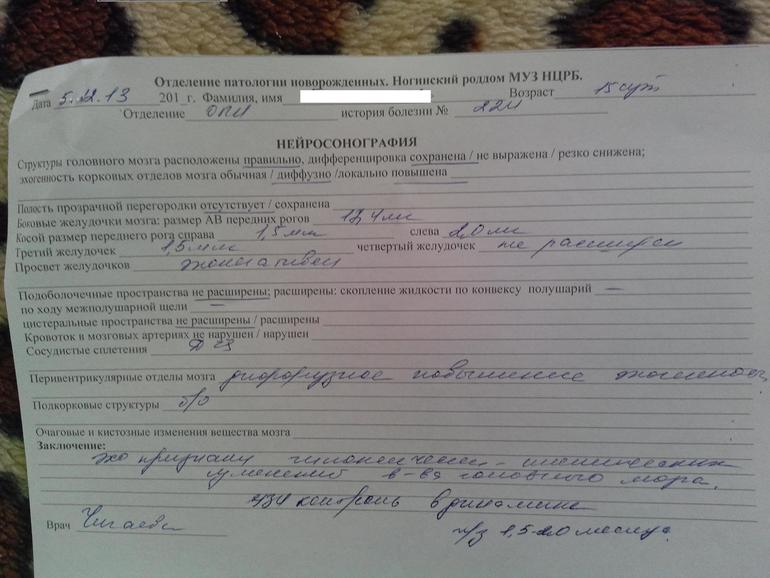 Отделение патологии новорожденных. Ногинский роддом МУЗ НЦРБ.
Дата 5.12.13 201_г. Фамилия, имя Возраст 15 сут
Отделение ОПН история болезни № 224
НЕЙРОСОНОГРАФИЯ
Структуры головного мозга расположены правильно, дифференцировка сохранена / не выражена / резко снижена;
эхогенность корковых отделов мозга обычная / диффузно /локально повышена
Полость прозрачной перегородки отсутствует / сохранена
Боковые желудочки мозга: размер АВ передних рогов мм
Косой размер переднего рога справа 1,5 мм слева 2,0 мм
Третий желудочек 1,5 мм четвертый желудочек не расширен
Просвет желудочков эхонегативен
Подоболочечные пространства не расширены; расширены: скопление жидкости по конвексу полушарий —
по ходу межполушарной щели —
цистеральные пространства не расширены / расширены
Кровоток в мозговых артериях не нарушен / нарушен
Сосудистые сплетения
Перивентрикулярные отделы мозга диффузное повышение эхогенности
Подкорковые структуры б/о
Очаговые и кистозные изменения вещества мозга
Заключение:
эхо признаки гипоксически - ишемических
изменений в-ва головного мозга.
узи контроль в динамике
Врач Чигаева
ч/з 1,5-2,0 месяца.